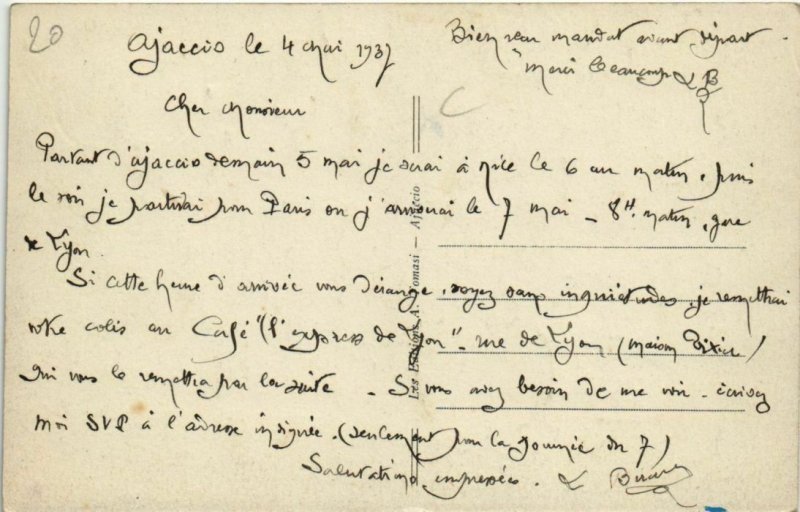 20
Ajaccio le 4 Mai 1937
Bien reçu mandat avant départ.
"merci beaucoup L B
Cher Monsieur
Partant d'Ajaccio demain 5 mai je serai à Nice le 6 au matin, puis
le soir je partirai pour Paris ou j'arriverai le 7 mai - 8H matin, gare
de Lyon.
Si cette heure d'arrivée vous dérange, soyez sans inquietudes, je remettrai
votre colis au Café "(l'express de Lyon" - rue de Lyon (maison)
Qui vous le remettra par la suite - Si vous avez besoin de me voir - écrivez
moi SVP à l'adresse indiquée. (seulement pour la journée du 7)
Salutations empressées. L
Les Editions A. Tomasi — Ajaccio